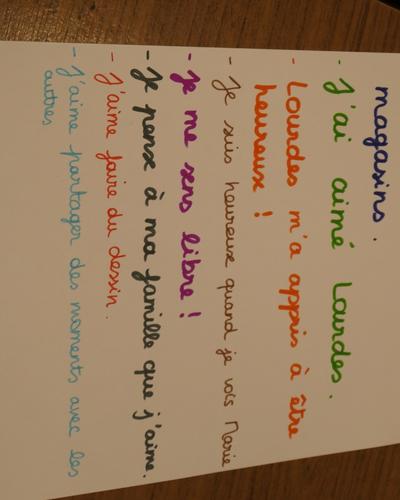 magasins.
- J'ai aimé Lourdes.
- Lourdes m'a appris à être
heureux !
- Je suis heureux quand je vois Marie
- je me sens libre !
- Je pense à ma famille que j'aime.
- J'aime faire du dessin.
- J'aime partager des moments avec les
autres